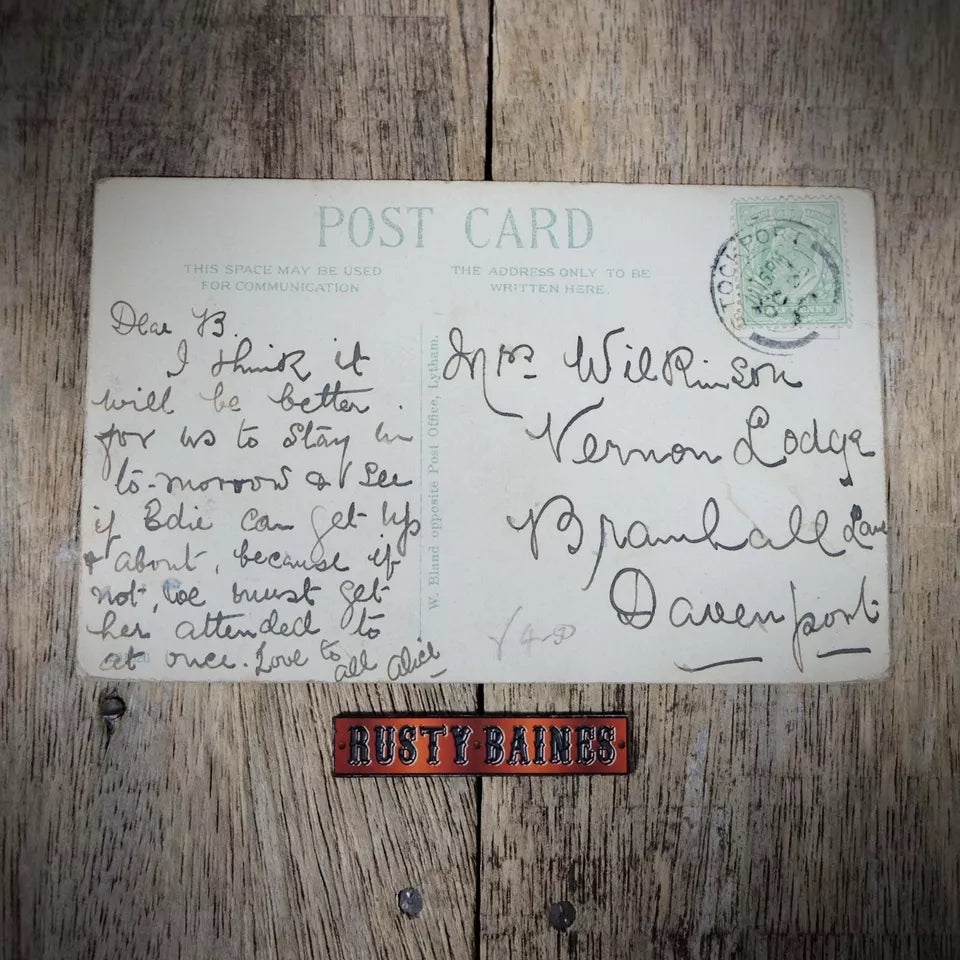 POST CARD
THIS SPACE MAY BE USED
FOR COMMUNICATION
THE ADDRESS ONLY TO BE
WRITTEN HERE.
STOCKPORT
PENNY
Dear B.
I think it
will be better.
for us to stay in
to-morrow & see
if Edie can get up
& about, because if
not, we must get
her attended to
at once. Love to
all Alice
W. Bland opposite Post Office, Lytham.
Mrs Wilkinson
Vernon Lodge
Bramhall Lane
Davenport
RUSTY BAINES